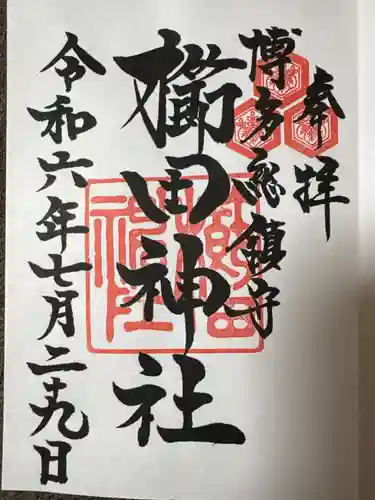 奉拝
博多総鎮守
櫛田神社
令和六年七月二十九日
櫛田神社